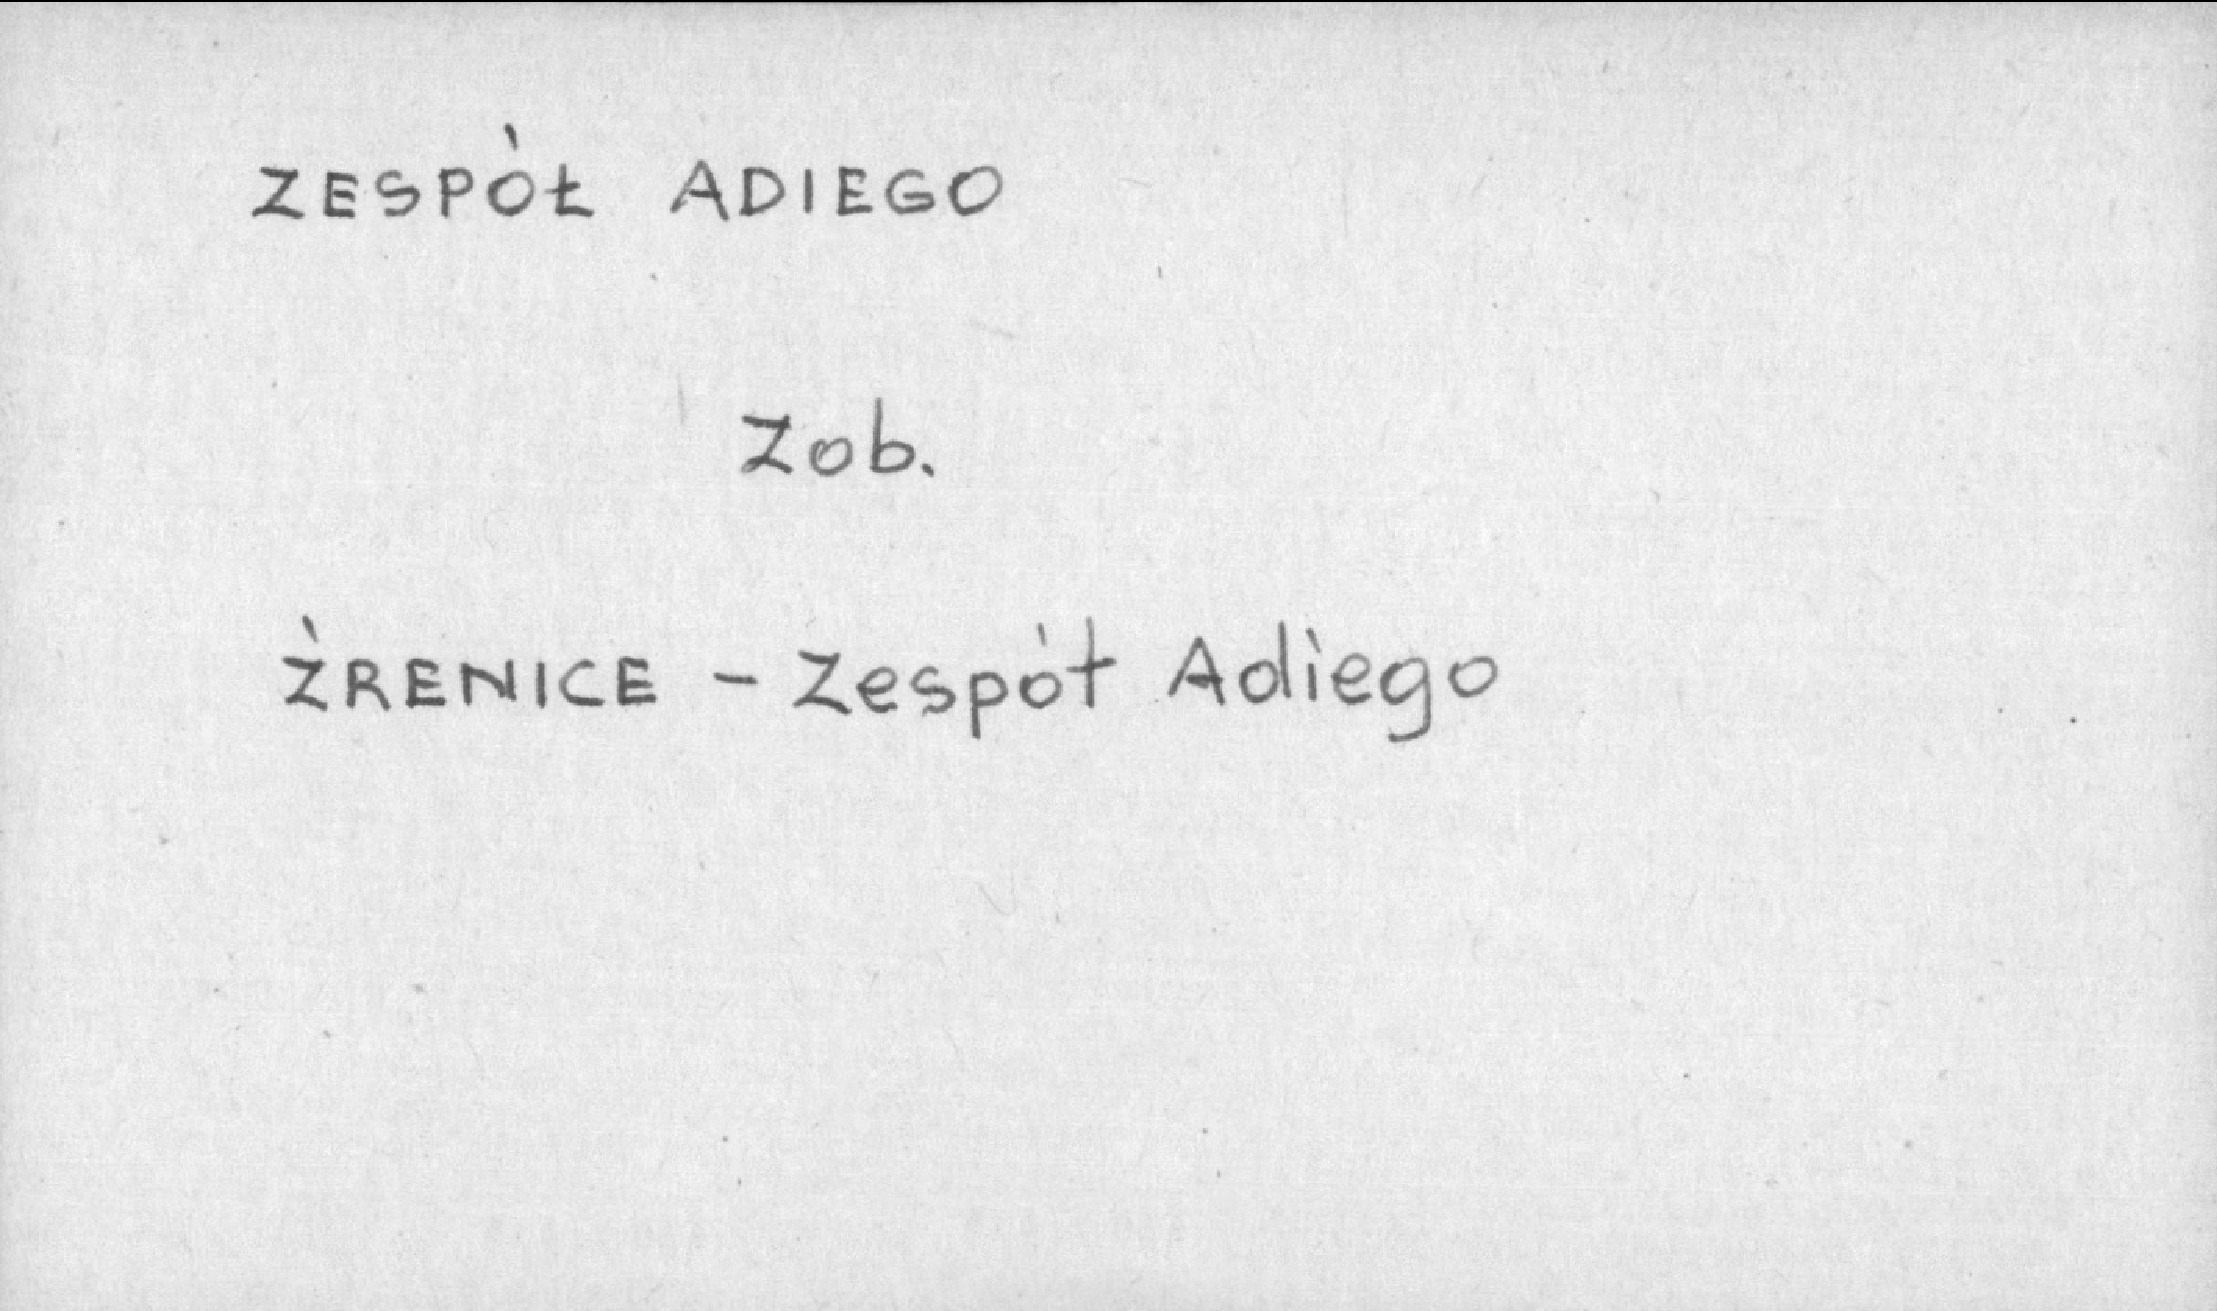 ZESPÓŁ ADIEGO
Zob.
ŹRENICE - Zespół Adiego